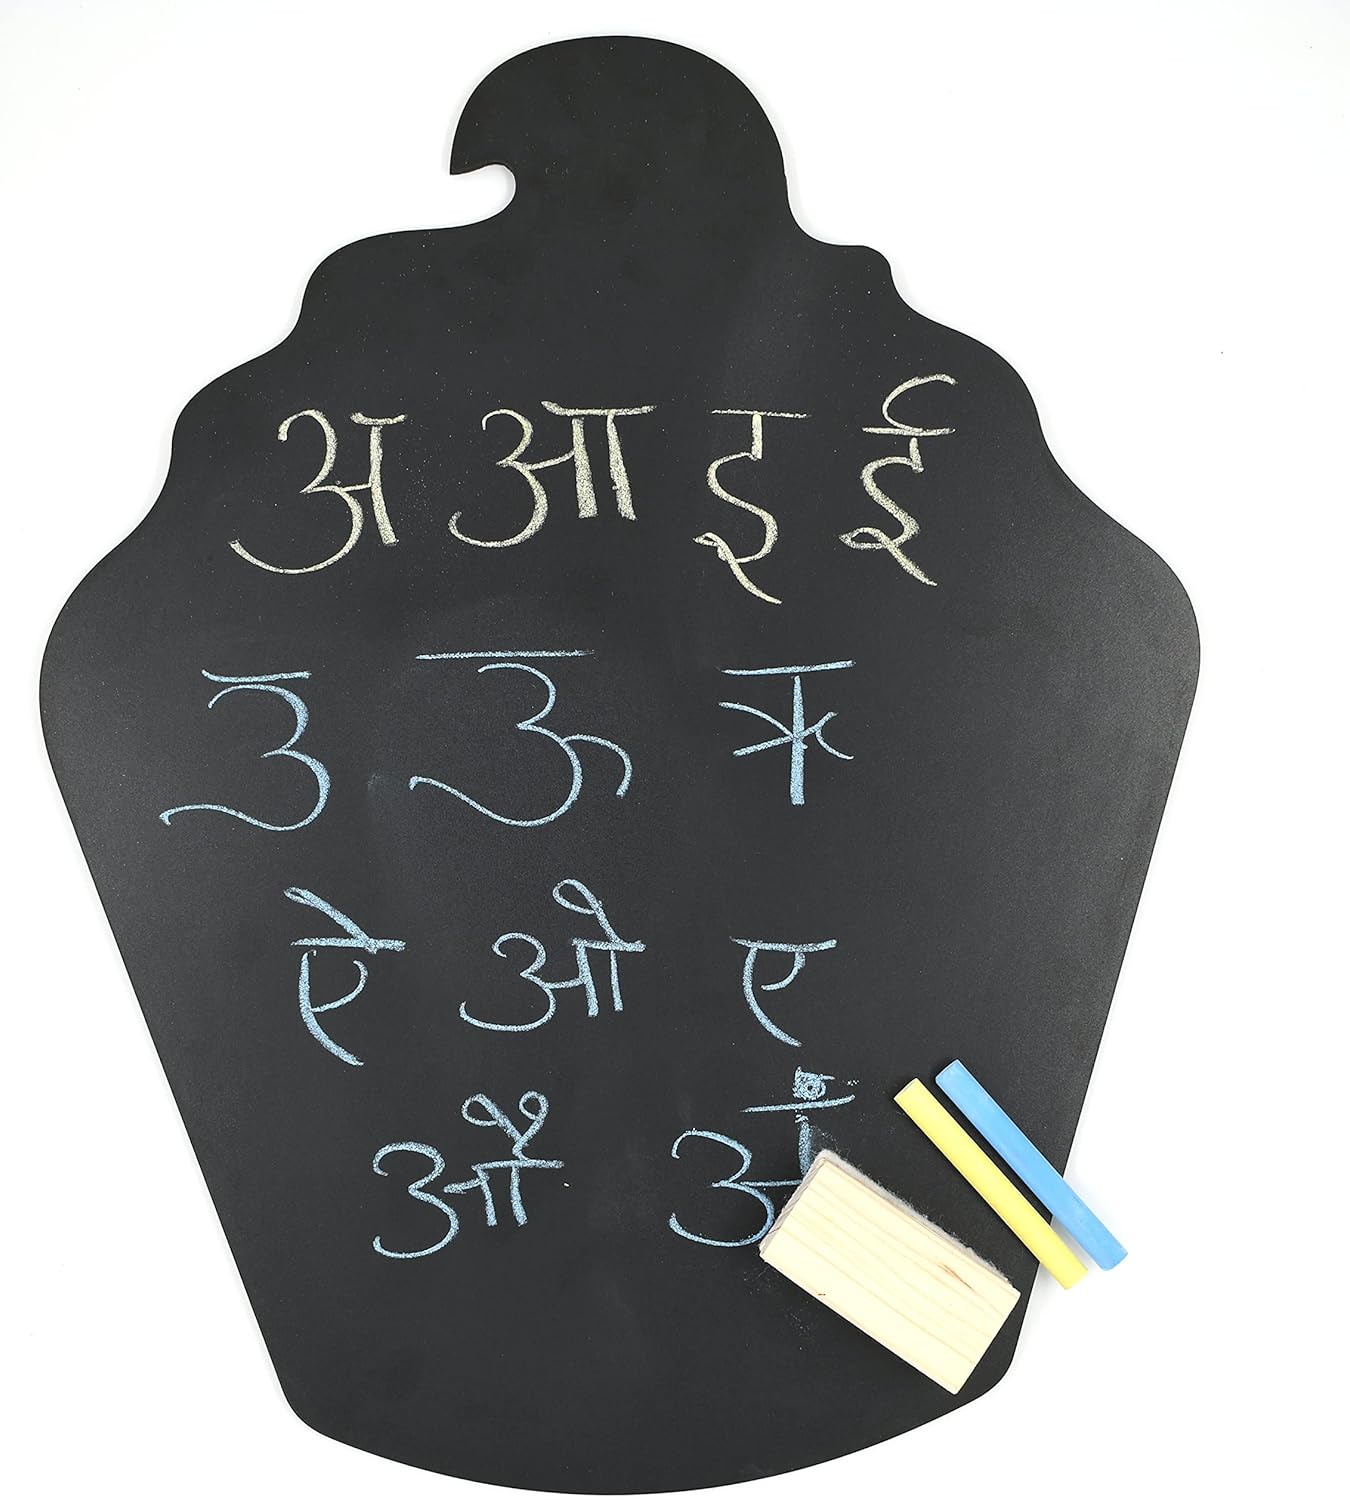 अ आ इ ई
उ ऊ ऋ
ऐ ओ ए
औ अं